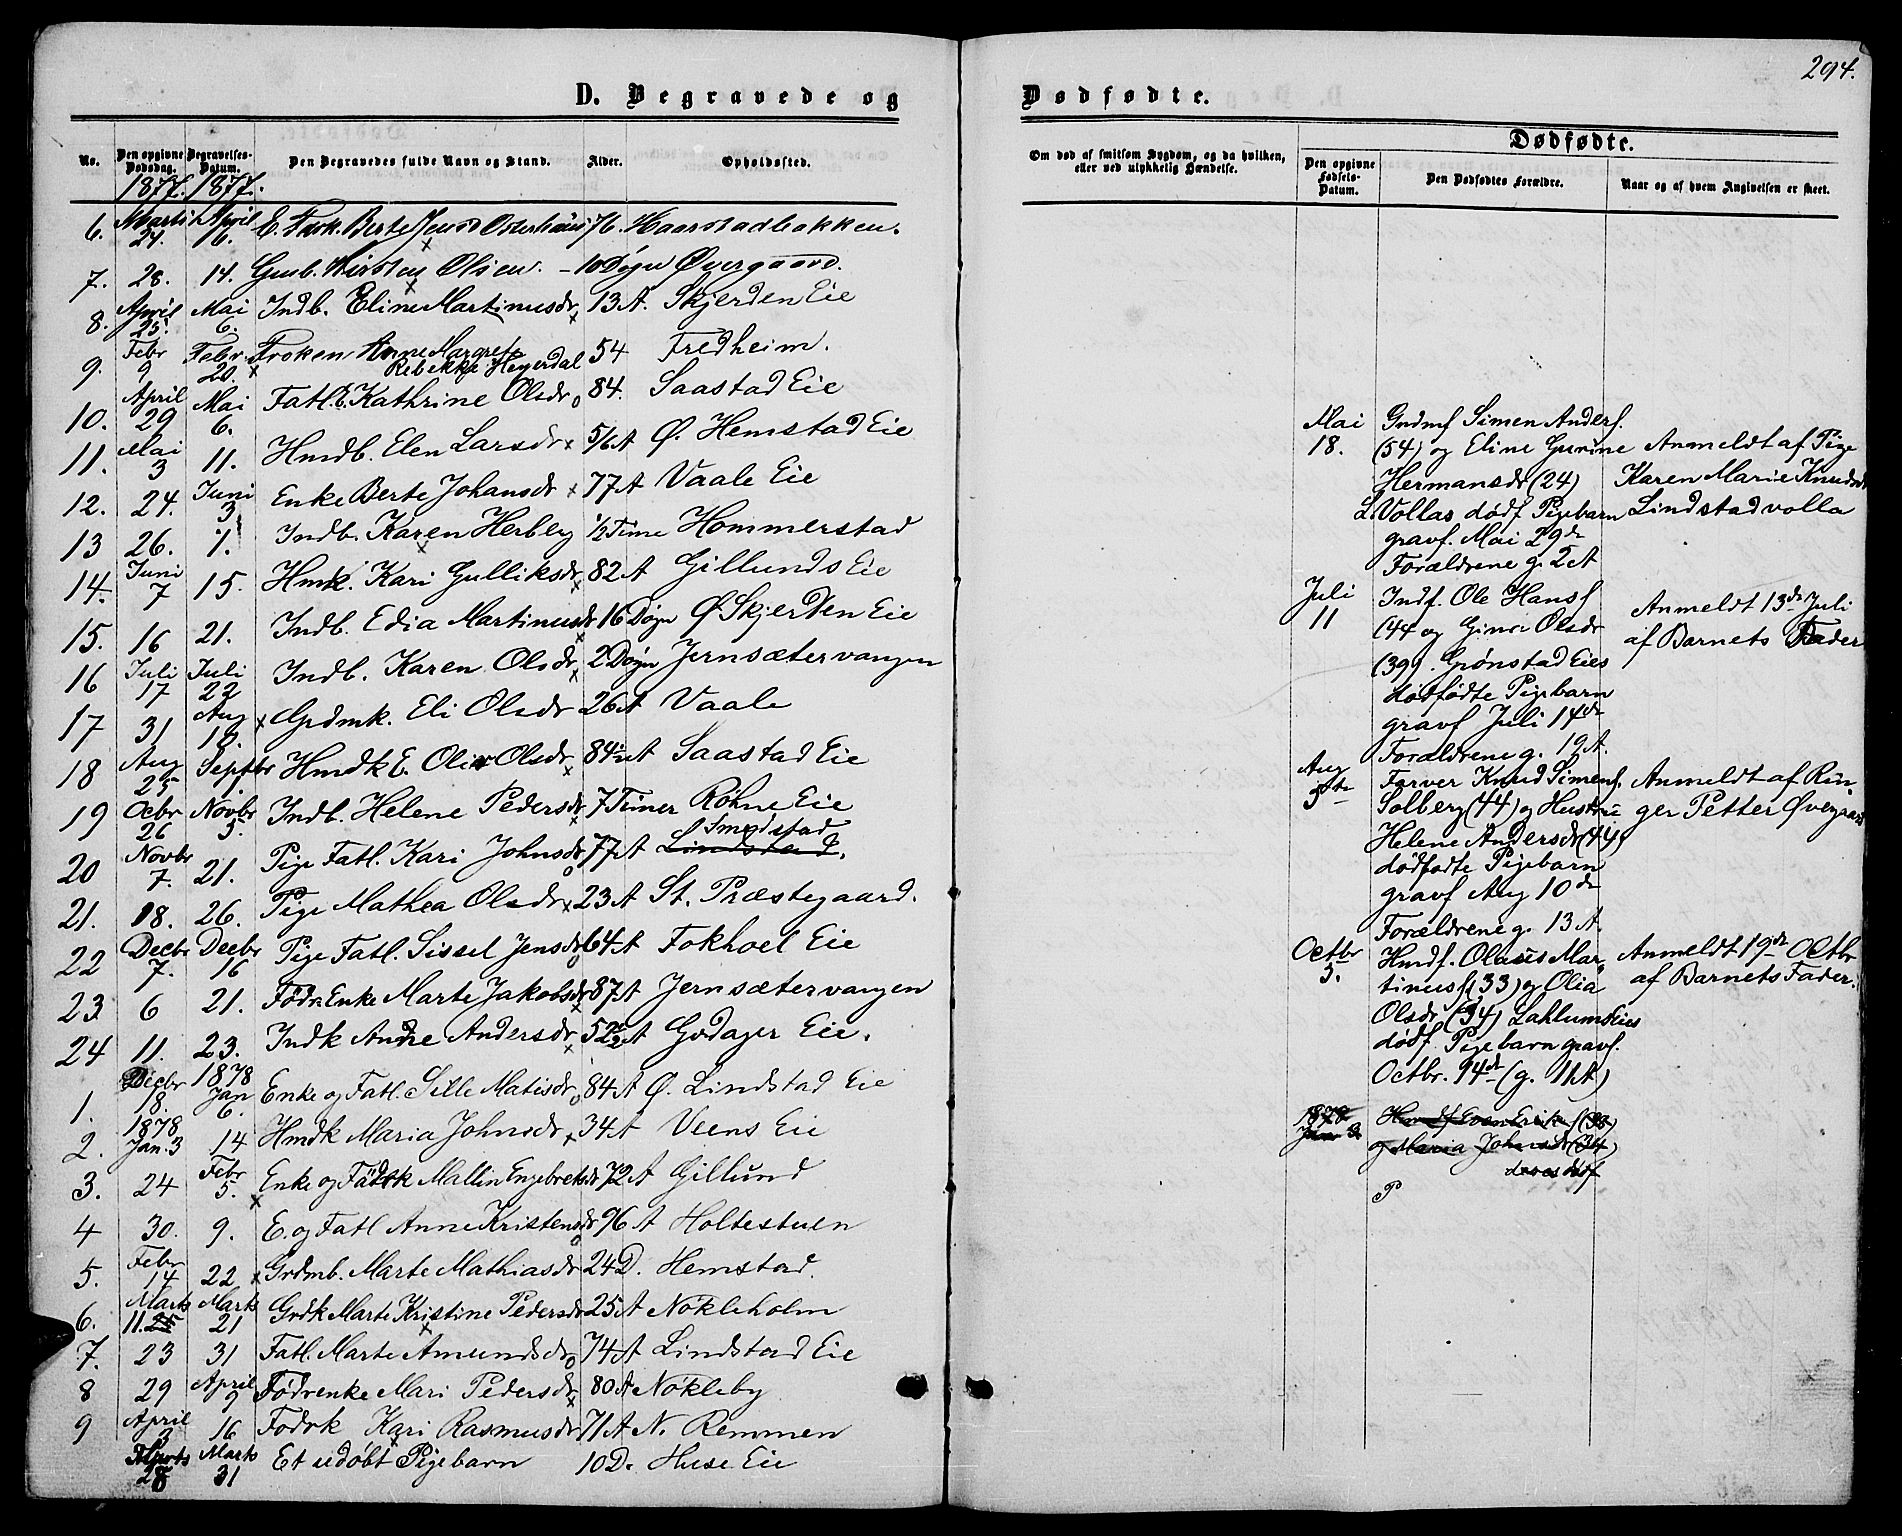 294.
D. Begravede og Dødfødte.
No. Den opgivne Dødsdag. Begravelses-Datum. Den Begravedes fulde Navn og Stand. Alder. Opholdssted.
1877. 1877.
6. Marts 24. April 16. E. Berte Jensd 76. Haarstadbakken.
7. 28. 14. Gmb. Kirsten Olsen. 10 Døgn Øvergaard.
8. April 25. Mai 6. Indb. Eline Martinusdr 13 A. Skjerden Eie
9. Febr 9 Febr 20. Frøken Anne Margrete Rebekke Heyerdal 54 Fredheim.
10. April 29 Mai 6. Fatl. E. Kathrine Olsdr 84. Saastad Eie
11. Mai 3 11. Hmdb. Elen Larsdr 5/6 A Ø. Hemstad Eie
12. 24. Juni 3 Enke Berte Johansdr 77 A Vaale Eie
13 26. 1. Indb. Karen Herbley 1/2 Time Hommerstad
14. Juni 7 15. Hmk. Kari Gulliksdr 82 A Gillunds Eie
15. 16 21. Indb. Edia Martinusdr 16 Døgn Ø. Skjerden Eie
16 Juli 17 Juli 22 Indb. Karen Olsdr 2 Døgn Jernsætervangen
17 31 Aug 10. Grdmk. Eli Olsdr 26 A Vaale
18 Aug 25 Septbr 1. Hmdk E. Olia Olsdr 84 A Saastad Eie
19 Octbr 26 Novbr 5. Indb. Helene Pedersdr 7 Timer Røhne Eie
20 Novbr 7. 21. Pige Fatl. Kari Johnsdr 77 A Lindstad. Smedstad
21. 18. 26. Pige Mathea Olsdr 23 A St. Præstegaard.
22 Decbr 7. Decbr 16 Pige Fatl. Sissel Jensdr 64 A Fokhoel Eie
23 6 21. Fødr. Enke Marte Jakobsdr 87 A Jernsætervangen
24 11. 23. Indk Andre Andersdr 52 1/2 A Godager Eie.
1. Decbr 18. 1878 Jan 6. Enke og Fatl. Sille Matisdr 84 A Ø. Lindstad Eie
2. 1878 Jan. 3 14 Hmdk Maria Johnsdr 34 A Veens Eie
3. 24 Febr 5. Enke og Fødrk Mallin Engebretsdr 72 A Gillund
4 30. 9. E. og Fatl Anne Kristensdr 96 A Holtestuen
5. Febr 14 22 Grdmb. Marte Mathiasdr 24 D. Hemstad.
6. Marts 11. 25 Marts 21 Grdk Marte Kristine Pedersdr 25 A Nokleholm
7. 23 31 Fatl. Marte Amundsdr 74 A Lindstad Eie
8 29 April 9 Fødrenke Mari Pedersdr 80 A Nokleby
9 April 3 16 Fødrk Kari Rasmusdr 71 A N. Remmen
Marts 28 Marts 31 Et udøbt Pigebarn 10 D. Huse Eie
Om død af smitsom Sygdom, og da hvilken, eller ved ulykkelig Hændelse.
Dødfødte.
Den opgivne Fødsels-Datum. Den Dødfødtes Forældre. Naar og af hvem Angivelsen er skeet.
Mai 18.
Grdmf Simen Andersf.
(54) og Eline Gurine
Hermansdr (24)
L. Vollas dødf Pigebarn
gravf. Mai 29de
Forældrene g. 2 A
Anmeldt af Pige
Karen Marie Knudsdr
Lindstadvolla
Juli 11
Indf. Ole Hansf
(44 og Gina Olsdr
(39). Grønstad Eies
dødfødte Pigebarn
gravf Juli 14de
Forældrene g. 19 A.
Anmeldt 13de Juli
af Barnets Fader
Aug 5te
Farver Knud Simensf.
Solberg (44) og Hustru
Helene Andersdr (44)
dødfødte Pigebarn
gravf Aug 10de
Forældrene g. 13 A.
Anmeldt af Rin-
ger Petter Øvergaard
Octbr 5.
Hmdf. Olaus Mar-
tinusf (33) og Olia
Olsdr (34) Lahlums Eies
dødf. Pigebarn gravf.
Octbr. 14de (g. 11 A)
Anmeldt 19de Octbr
af Barnets Fader.
1878 Jan 3
Hmdf Even Erikf (38)
og Maria Johnsdr (34)
deres dødf
P